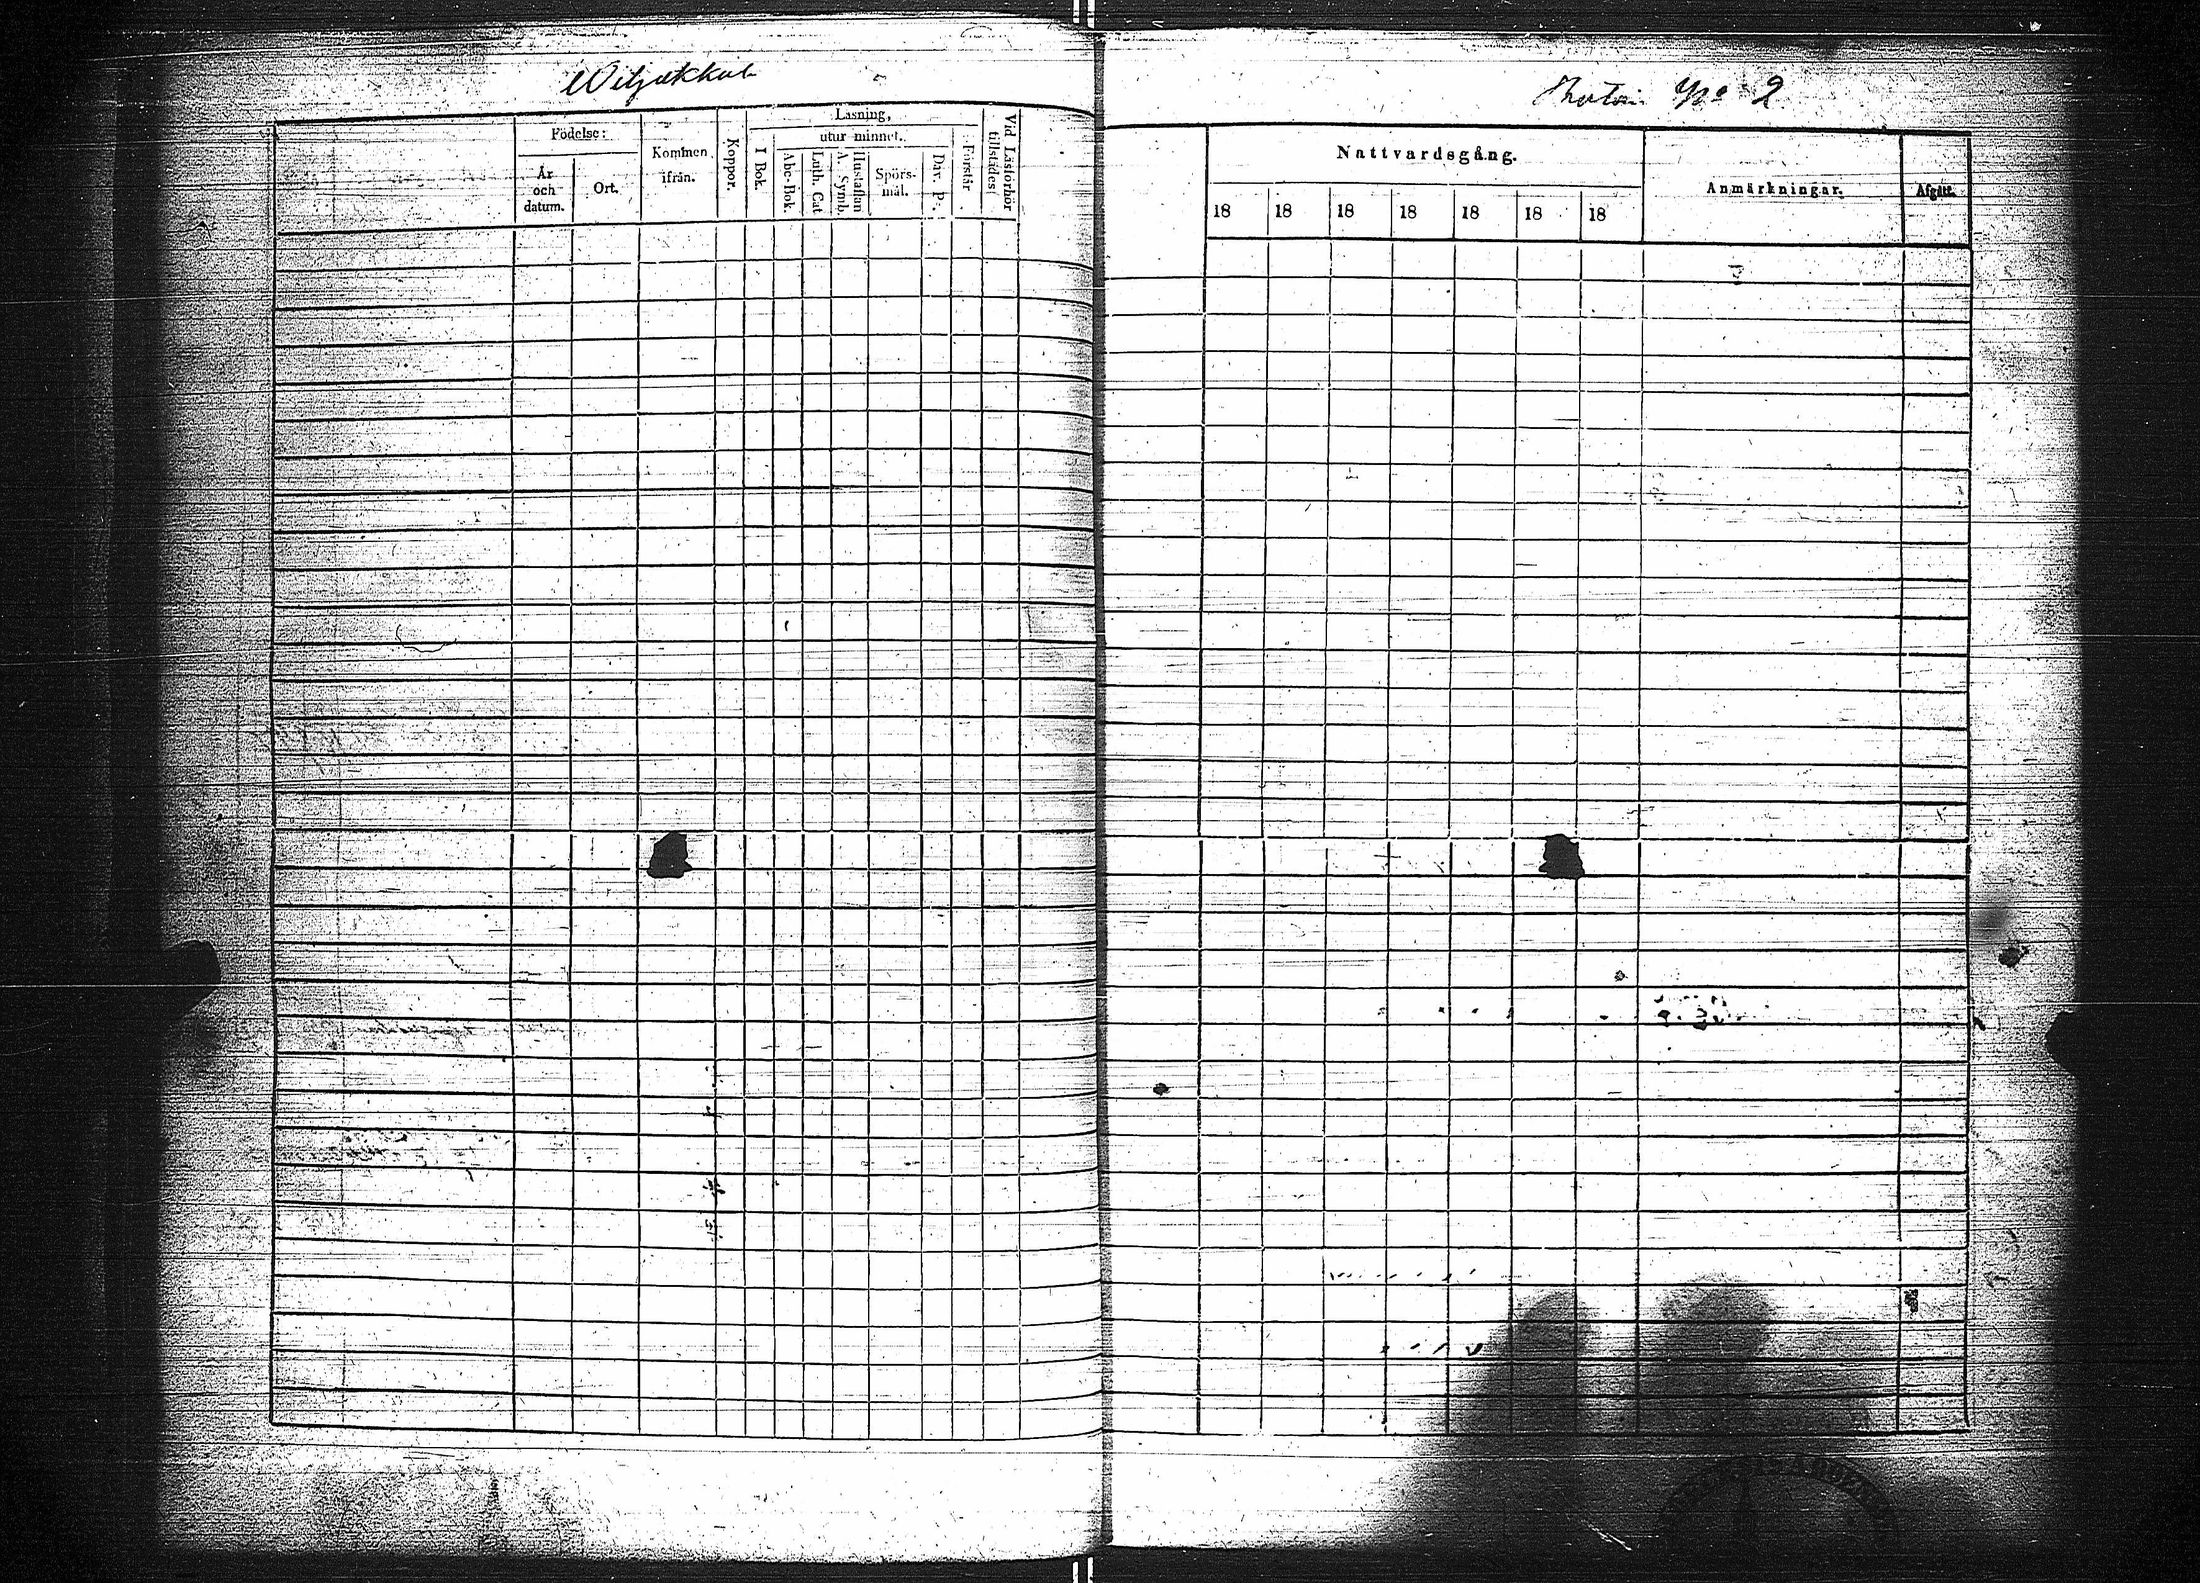 Wiljakkal
No 2
Födelse:
År och datum.
Ort.
Kommen ifrån.
Koppor.
Läsning,
utur minnet.
I Bok.
Abc-Bok.
Luth. Cat
A. Symb.
Hustaflan
Spörs-mål.
Dav. Ps.
Förstår
Vid Läsförhör tillstädes
Nattvardsgång.
18 18 18 18 18 18 18
Anmärkningar.
Afgått.